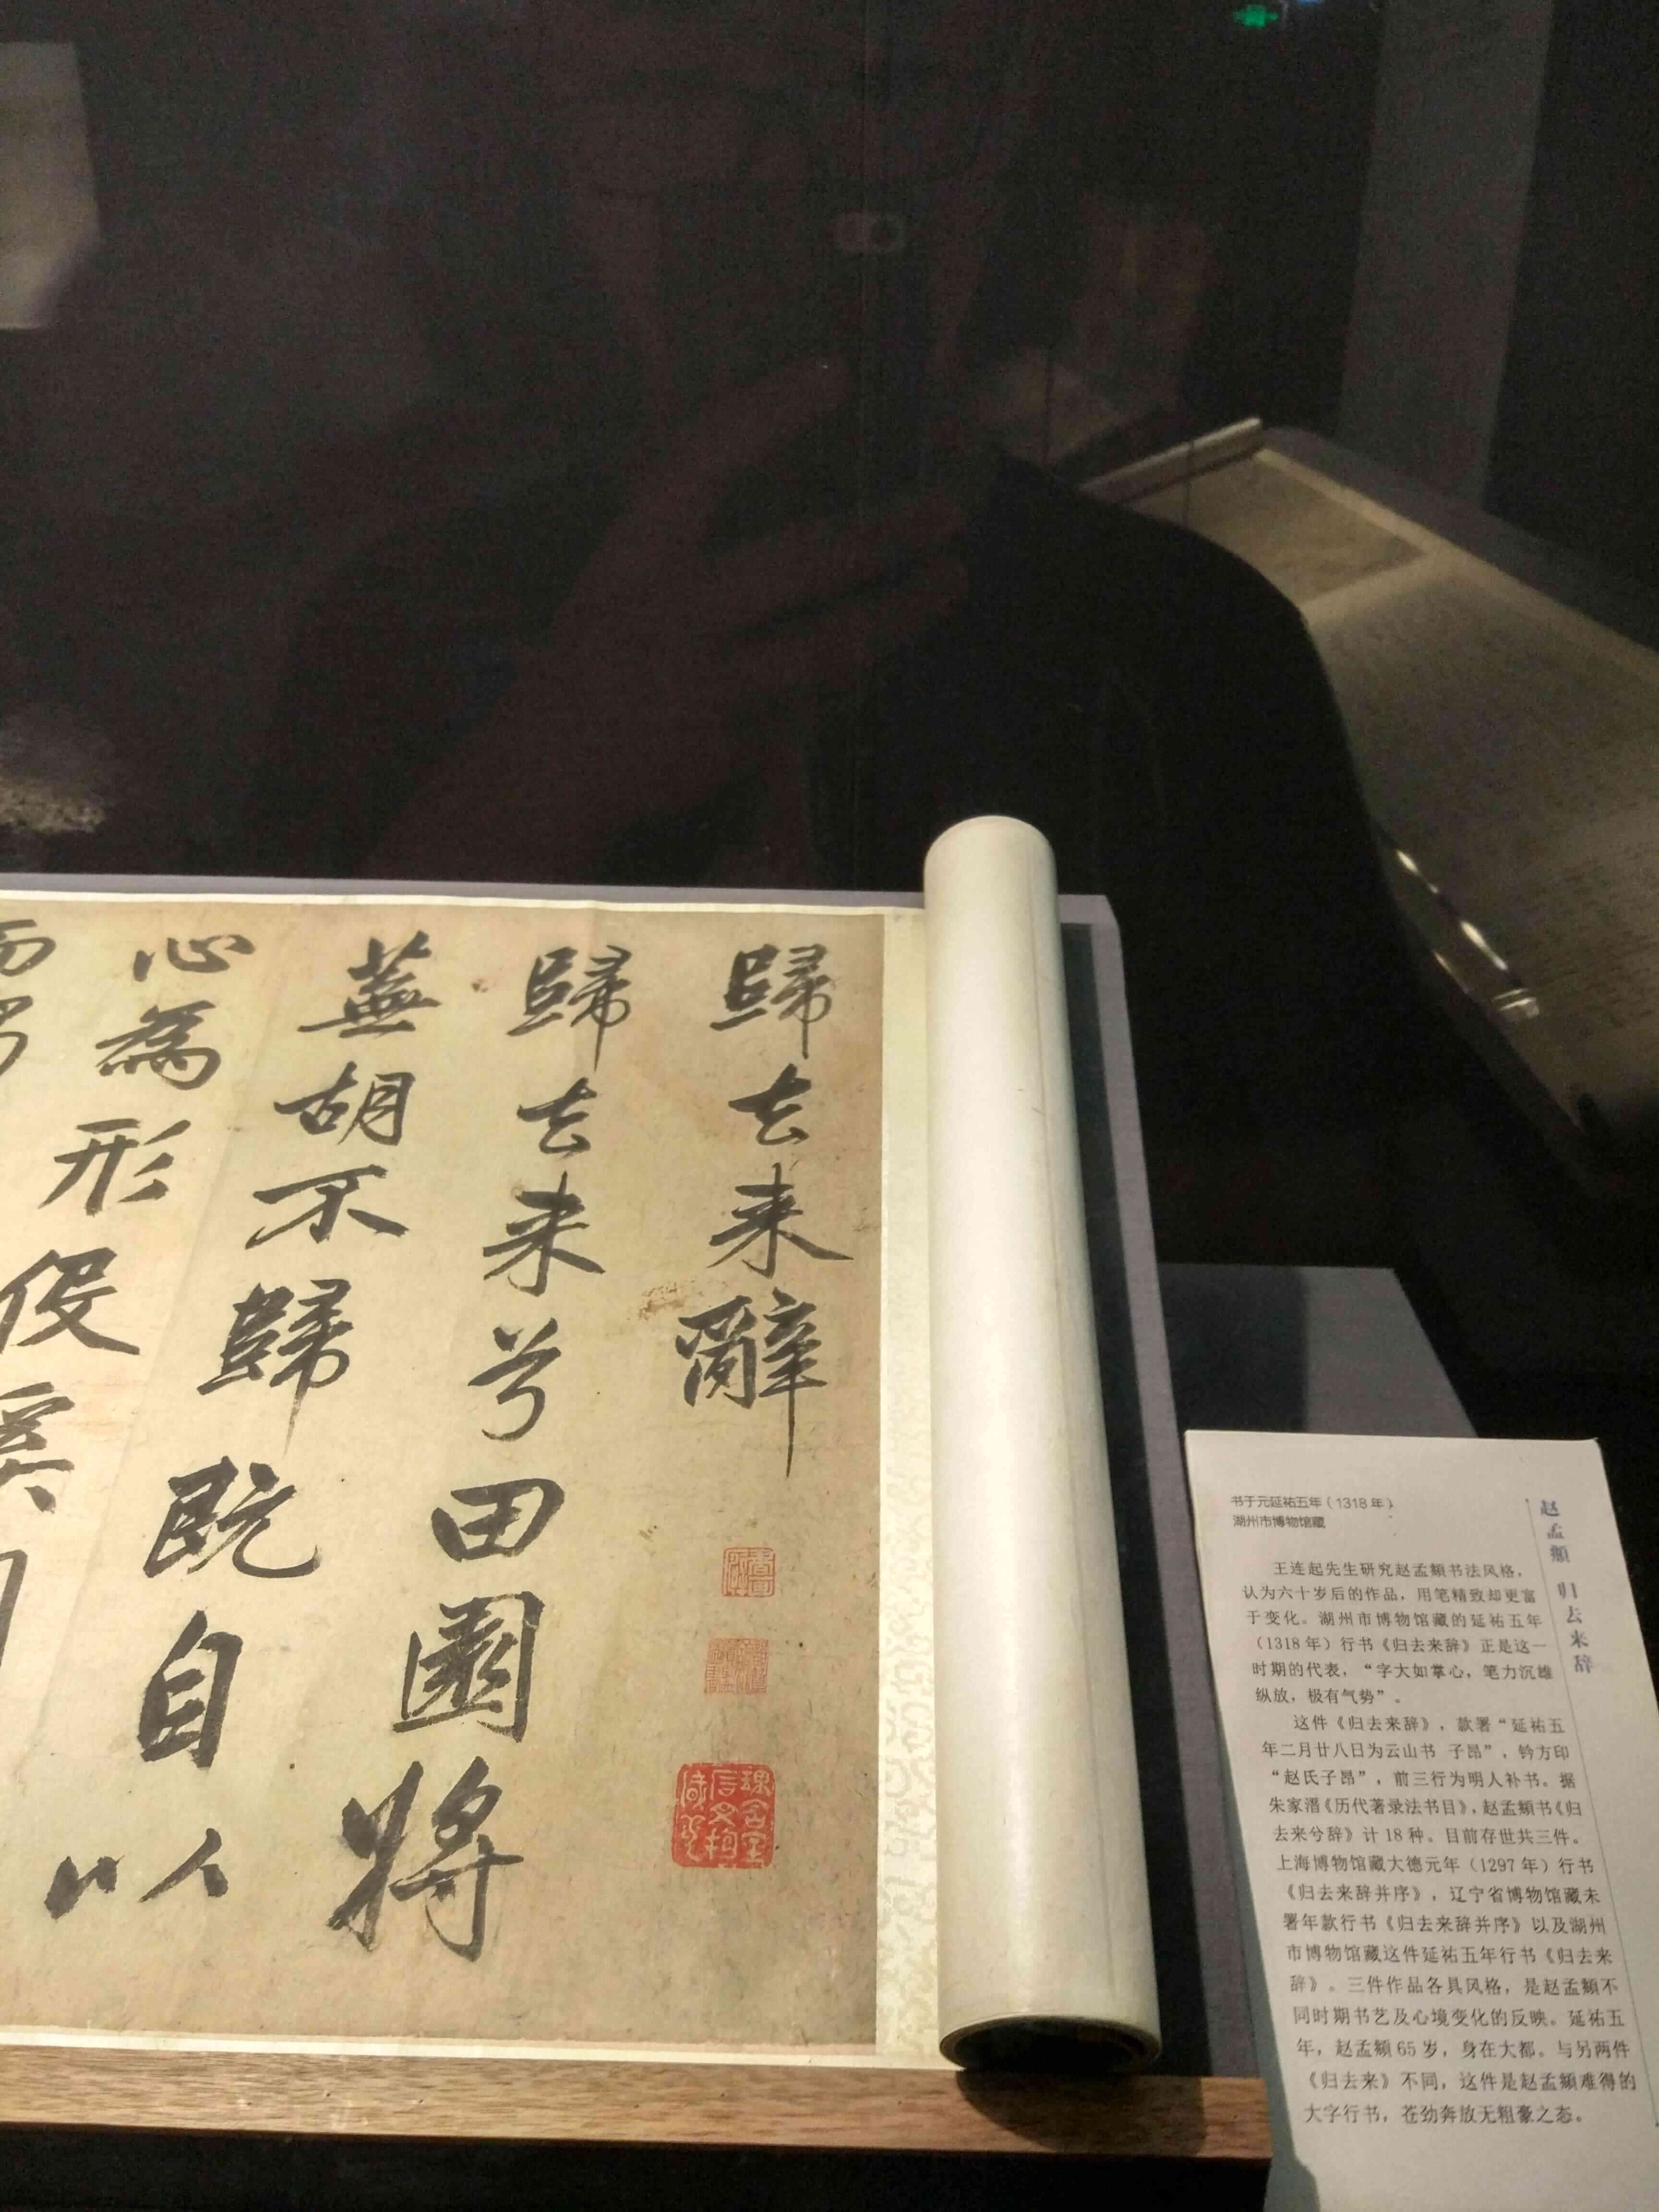 歸去来辭
歸去来兮田園將
蕪胡不歸既自以
心為形役奚
赵孟頫 归去来辞
书于元延祐五年（1318 年）
湖州市博物馆藏
王连起先生研究赵孟頫书法风格，
认为六十岁后的作品，用笔精致却更富
于变化。湖州市博物馆藏的延祐五年
（1318 年）行书《归去来辞》正是这一
时期的代表，“字大如掌心，笔力沉雄
纵放，极有气势”。
这件《归去来辞》，款署“延祐五
年二月廿八日为云山书 子昂”，钤方印
“赵氏子昂”，前三行为明人补书。据
朱家溍《历代著录法书目》，赵孟頫书《归
去来兮辞》计 18 种。目前存世共三件。
上海博物馆藏大德元年（1297 年）行书
《归去来辞并序》，辽宁省博物馆藏未
署年款行书《归去来辞并序》以及湖州
市博物馆藏这件延祐五年行书《归去来
辞》。三件作品各具风格，是赵孟頫不
同时期书艺及心境变化的反映。延祐五
年，赵孟頫 65 岁，身在大都。与另两件
《归去来》不同，这件是赵孟頫难得的
大字行书，苍劲奔放无粗豪之态。